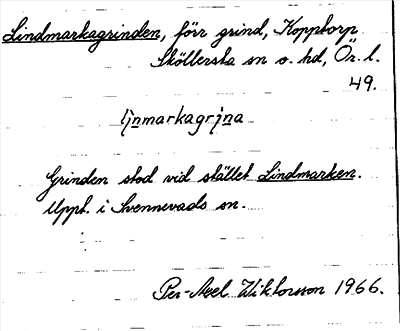 Lindmarkagrinden, förr grind, Kopptorp,
Sköllersta sn o. hd, Ör. l.
49.
linmarkagrina
Grinden stod vid stället Lindmarken.
Uppt. i Svennevads sn.
Per-Axel Wiktorsson 1966.